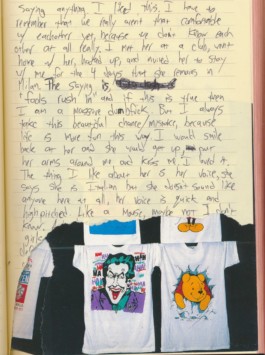 Saying anything I liked this, I have to
remember that we really aren't that comfortable
w/ eachother yet, because we don't know each
other at all really. I met her at a club, went
home w/ her, hooked up and invited her to stay
w/ me for the 4 days that she remains in
Milan. The saying is
"fools rush in" and if this is true then
I am a massive dumbfuck. But I always
make this beautiful choice/mistake, because
life is more fun this way. I would smile
back at her and she would get up put
her arms around me and kiss me, I loved it.
The thing I like about her is her voice, she
says she is Italian but she doesn't sound like
anyone here at all, her voice is quick and
high pitched. Like a Mouse, maybe not I don't
know.
girls